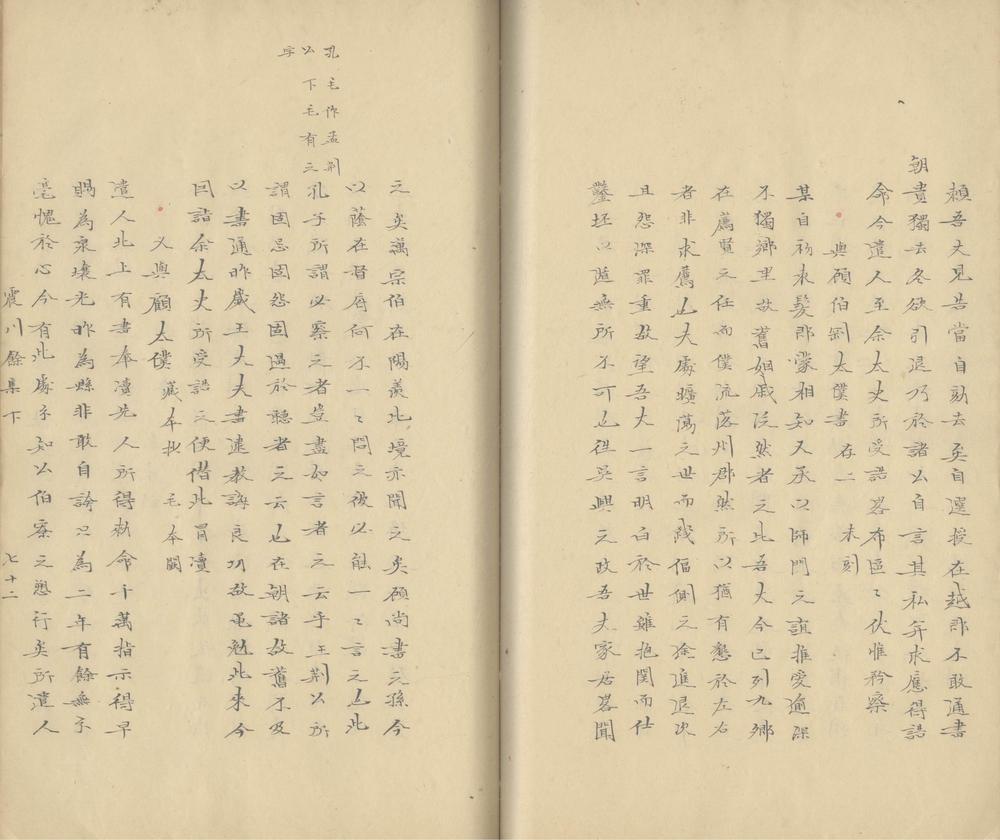 頼吾丈見告當自劾去矣自選授在越郡不敢通書
朝貴獨去冬欲引退乃於諸公自言其私弁求應得誥
命今遣人至余太史所受誥畧布區〻伏惟矜察
與顧伯剛太僕書 存二 未刻
某自初束髮郡蒙相知又承以師門之誼推愛逾深
不獨鄉里故舊姻戚泛然者之比吾大今已列九卿
在薦賢之任而僕流落州郡然所以猶有懇於左右
者非求薦也大處曠蕩之世而踐偪側之途進退次
且怨深罪重故望吾大一言明白於世雖抱関而仕
鑿坯以遁無所不可也徃吳興之政吾夫家居畧聞
之矣萬宗伯在陽羨北境亦聞之矣顧尚書之孫今
以蔭在省府何不一〻問之彼必能一〻言之也此
孔子所謂必察之者豈盡如言者之云乎王荆公所
謂固忌固怨固過於聽者之云也在朝諸故舊不及
以書通昨歲王大夫書逺敎誨良切故黽勉此來今
因詣余太史所受誥之便偕此冐瀆
又與顧太僕 藏本抄 毛本闕
遣人北上有書奉瀆先人所得勅命千萬指示得早
賜為泉壤光昨為縣非敢自論只為二年有餘無子
毫愧於心今有此處予知公伯寮之愬行矣所遣人
孔毛作孟荆
公下毛有之
字
震川餘集下
七十二